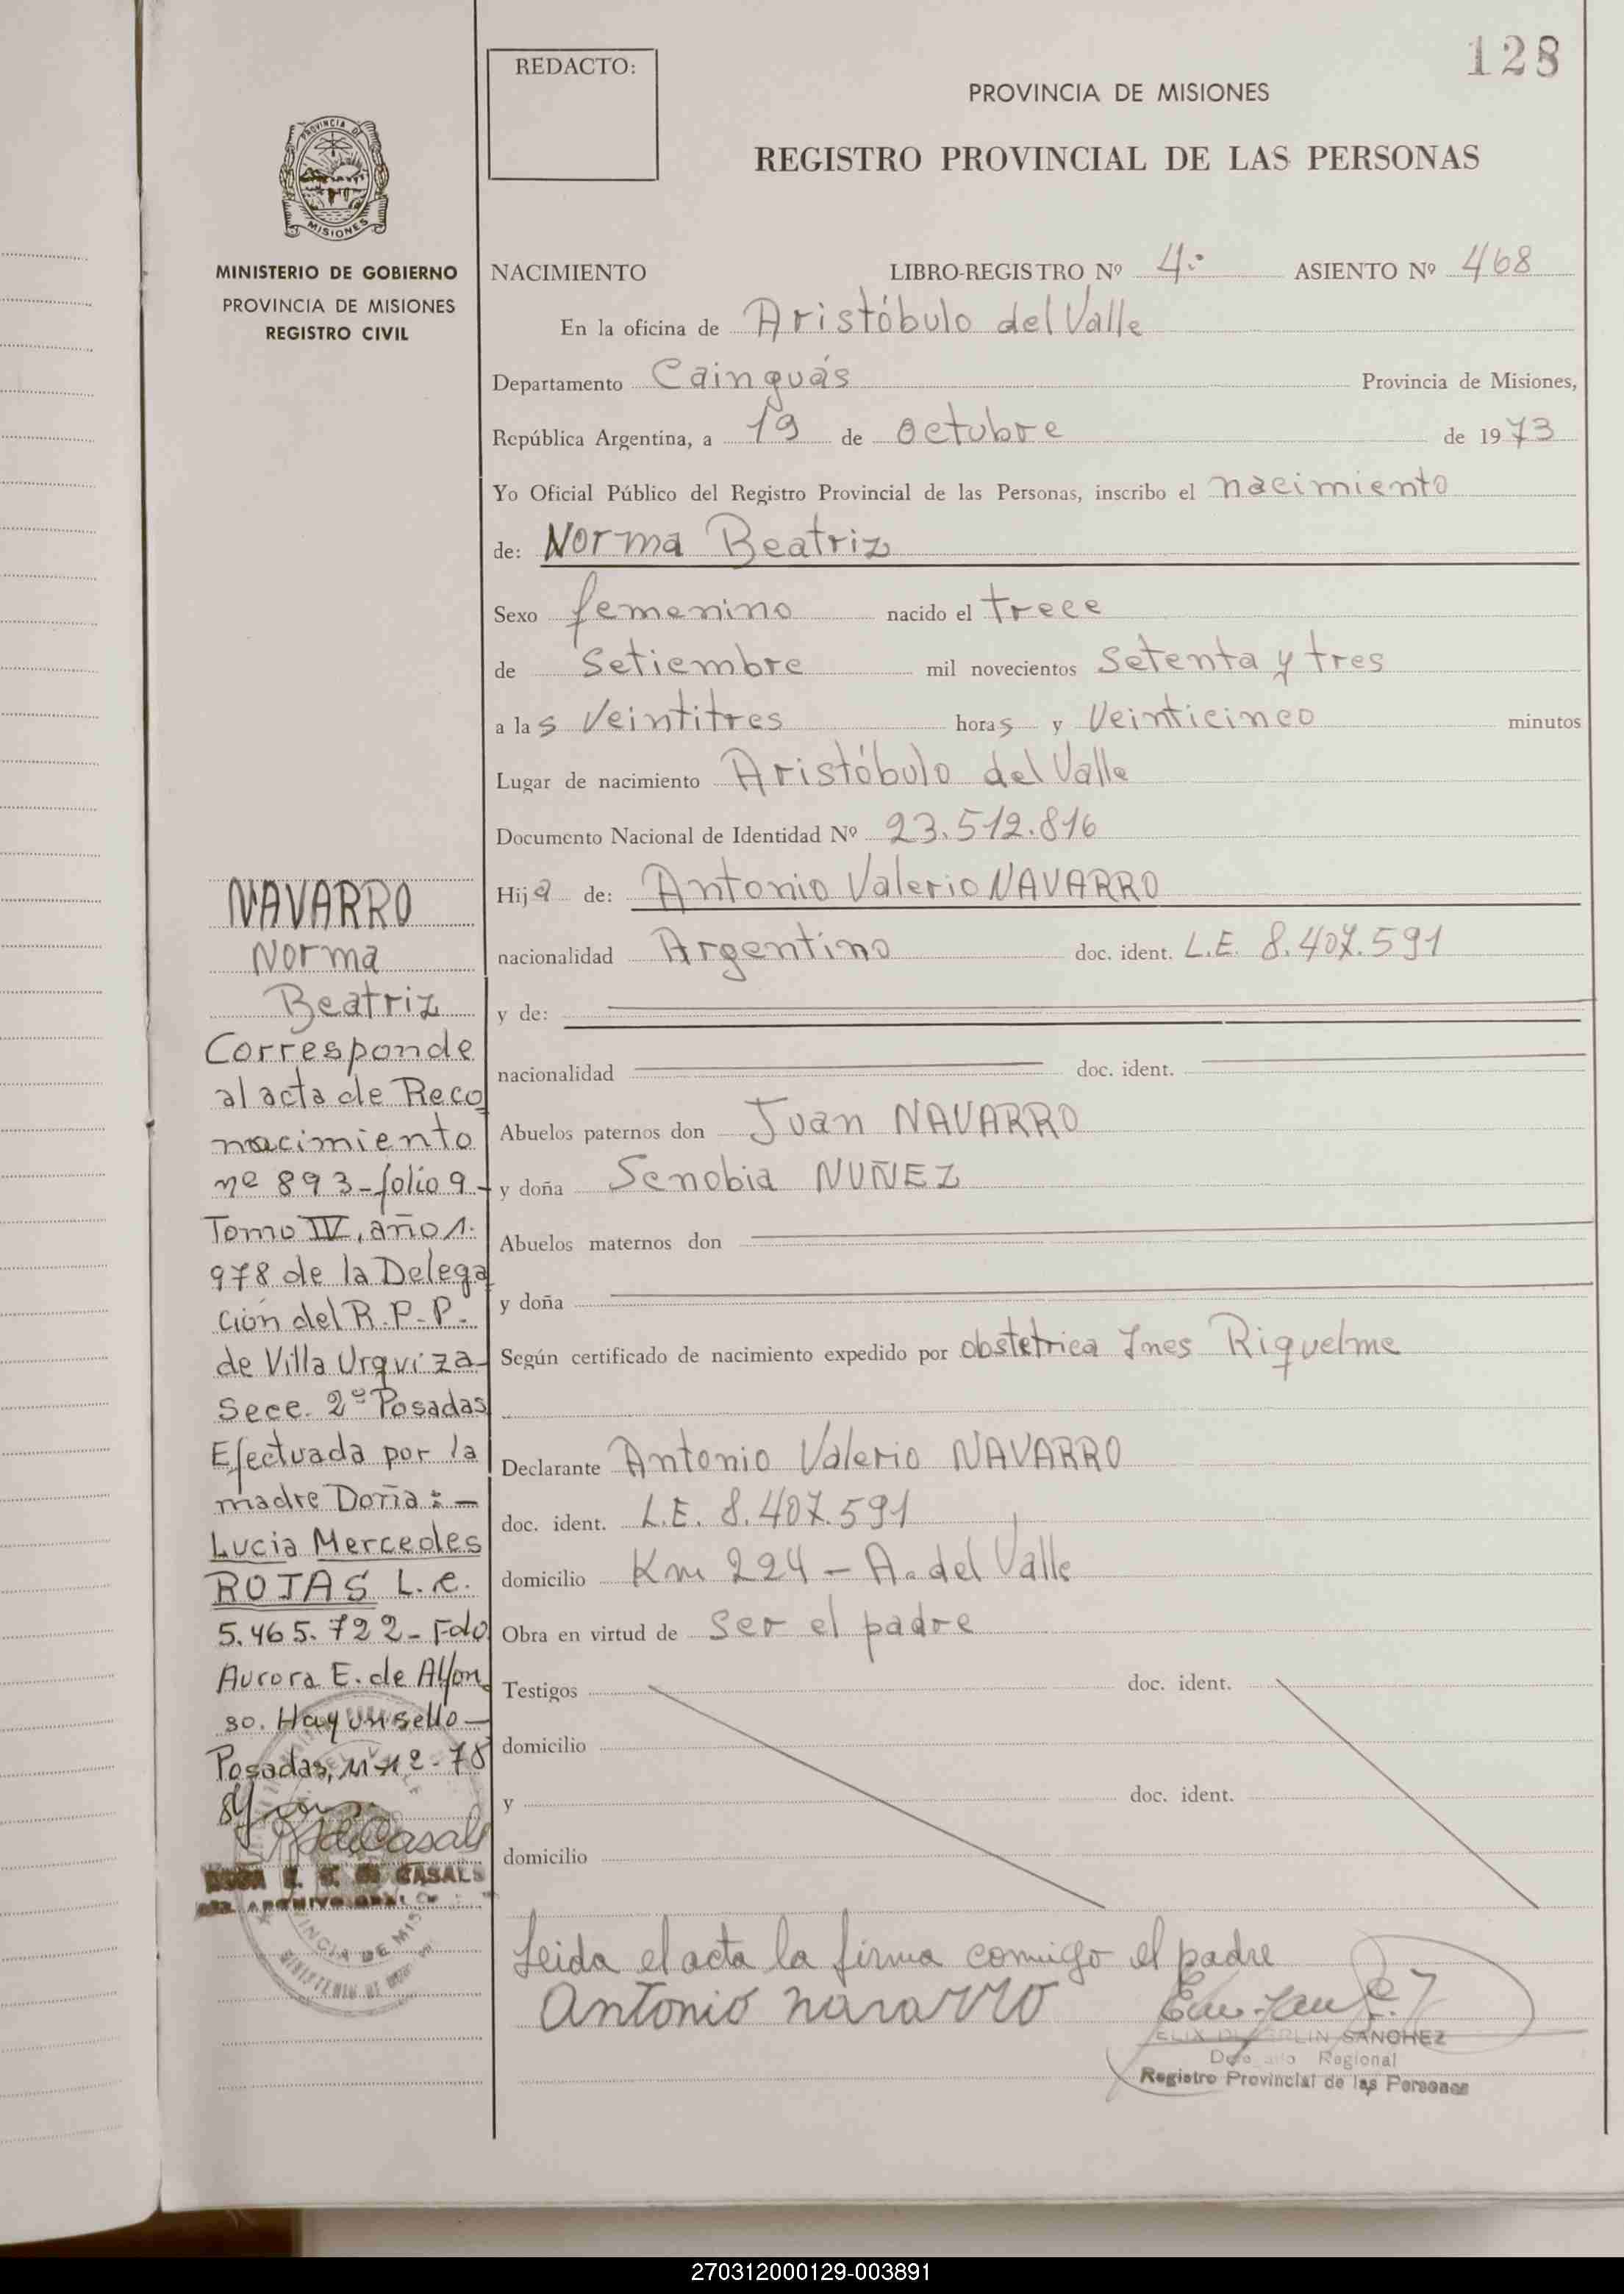 128
REDACTO:
PROVINCIA DE MISIONES
REGISTRO PROVINCIAL DE LAS PERSONAS
PROVINCIA DE
MISIONES
MINISTERIO DE GOBIERNO
PROVINCIA DE MISIONES
REGISTRO CIVIL
NACIMIENTO LIBRO-REGISTRO Nº 4º ASIENTO Nº 468
En la oficina de Aristóbulo del Valle
Departamento Cainguás Provincia de Misiones,
República Argentina, a 19 de octubre de 1973
Yo Oficial Público del Registro Provincial de las Personas, inscribo el nacimiento
de: Norma Beatriz
Sexo femenino nacido el trece
de Setiembre mil novecientos setenta y tres
a las veintitres horas y veinticinco minutos
Lugar de nacimiento Aristóbulo del Valle
Documento Nacional de Identidad Nº 23.512.816
Hija de: Antonio Valerio NAVARRO
nacionalidad Argentino doc. ident. L.E. 8.407.591
y de:
nacionalidad doc. ident.
Abuelos paternos don Juan NAVARRO
y doña Senobia NUÑEZ
Abuelos maternos don
y doña
Según certificado de nacimiento expedido por obstetrica Ines Riquelme
Declarante Antonio Valerio NAVARRO
doc. ident. L.E. 8.407.591
domicilio Km 224 - A. del Valle
Obra en virtud de ser el padre
Testigos doc. ident.
domicilio
y doc. ident.
domicilio
Leida el acta la firma comigo el padre
Antonio navarro
SANCHEZ
Regional
Registro Provincial de las Personas
NAVARRO
Norma
Beatriz
Corresponde
al acta de Reco
nocimiento
nº 893-folio 9-
Tomo IV, año 1.
978 de la Delega
ción del R.P.P.
de Villa Urquiza
Secc. 2º Posadas
Efectuada por la
madre Doña: -
Lucia Mercedes
ROJAS L.C.
5.465.722- Fdo
Aurora E. de Alfon
so. Hay un sello-
Posadas, 78
de Casals
CASALS
270312000129-003891